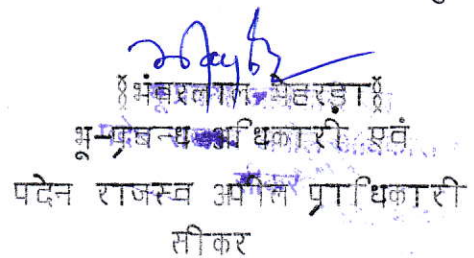 ४भंवरलाल मेहरड़ा४
भू-प्रबन्ध अधिकारी एवं
पदेन राजस्व अपील प्राधिकारी
सीकर